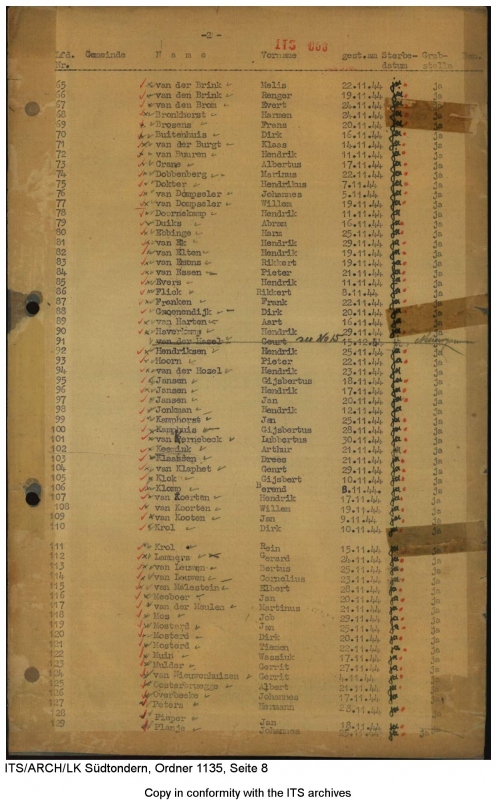 -2-
ITS 008
Lfd. Nr. Gemeinde Name Vorname gest.am Sterbe-datum Grab-stelle Bem.
65 van der Brink Melis 22.11.44 ja
66 van den Brink Renger 19.11.44 ja
67 van den Brom Evert 24.11.44 ja
68 Bronkhorst Harmen 24.11.44 ja
69 Brosens Frans 20.11.44 ja
70 Buitenhuis Dirk 16.11.44 ja
71 van der Burgt Klaas 14.11.44 ja
72 van Buuren Hendrik 11.11.44 ja
73 Crans Albertus 17.11.44 ja
74 Dobbenberg Marinus 22.11.44 ja
75 Dokter Hendrikus 7.11.44 ja
76 van Dompseler Johannes 5.11.44 ja
77 van Dompseler Willem 19.11.44 ja
78 Doornekamp Hendrik 11.11.44 ja
79 Duiks Abram 16.11.44 ja
80 Ebbinge Harm 25.11.44 ja
81 van Ek Hendrik 29.11.44 ja
82 van Elten Hendrik 19.11.44 ja
83 van Emons Rikkert 19.11.44 ja
84 van Essen Pieter 21.11.44 ja
85 Evers Hendrik 11.11.44 ja
86 Fliek Rikkert 8.11.44 ja
87 Frenken Frank 22.11.44 ja
88 Gmoenendijk Dirk 20.11.44 ja
89 van Harten Aart 16.11.44 ja
90 Haverburg Hendrik 29.11.44 ja
91 van der Hazel Geurt see No 15 15.12.
92 Hendriksen Hendrik 25.11.44 ja
93 Hoorn Pieter 22.11.44 ja
94 van der Hosel Hendrik 23.11.44 ja
95 Jansen Gijsbertus 18.11.44 ja
96 Jansen Hendrik 17.11.44 ja
97 Jansen Jan 20.11.44 ja
98 Jonkman Hendrik 12.11.44 ja
99 Kamphorst Jan 25.11.44 ja
100 Kamphuis Gijsbertus 28.11.44 ja
101 van Kernebeek Lubbertus 30.11.44 ja
102 Keppink Arthur 21.11.44 ja
103 Klaassen Drees 21.11.44 ja
104 van Klaphet Geurt 29.11.44 ja
105 Klok Gijsbert 10.11.44 ja
106 Klomp Berend 8.11.44 ja
107 van Koerten Hendrik 17.11.44 ja
108 van Koerten Willem 19.11.44 ja
109 van Kooten Jan 9.11.44 ja
110 Krol Dirk 10.11.44 ja
111 Krol Rein 15.11.44 ja
112 Gerard 24.11.44 ja
113 van Leuwen Bertus 25.11.44 ja
114 van Leuwen Cornelius 23.11.44 ja
115 van Malestein Elbert 28.11.44 ja
116 Meeboer Jan 20.11.44 ja
117 van der Meulen Martinus 21.11.44 ja
118 Mos Job 29.11.44 ja
119 Mosterd Jan 25.11.44 ja
120 Mosterd Dirk 20.11.44 ja
121 Mosterd Tiemen 22.11.44 ja
122 Muin Wassink 17.11.44 ja
123 Mulder Gerrit 27.11.44 ja
124 van Nieuwenhuizen Gerrit 4.11.44 ja
125 Oosterbrugge Albert 21.11.44 ja
126 Overbeeke Johannes 17.11.44 ja
127 Peters Hermann 28.11.44 ja
128 Pieper Jan 18.11.44 ja
129 Planje Johannes 25.11.44 ja
ITS/ARCH/LK Südtondern, Ordner 1135, Seite 8
Copy in conformity with the ITS archives